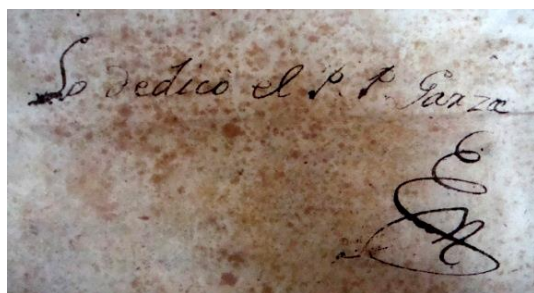 Lo dedicò el P. P. Garza